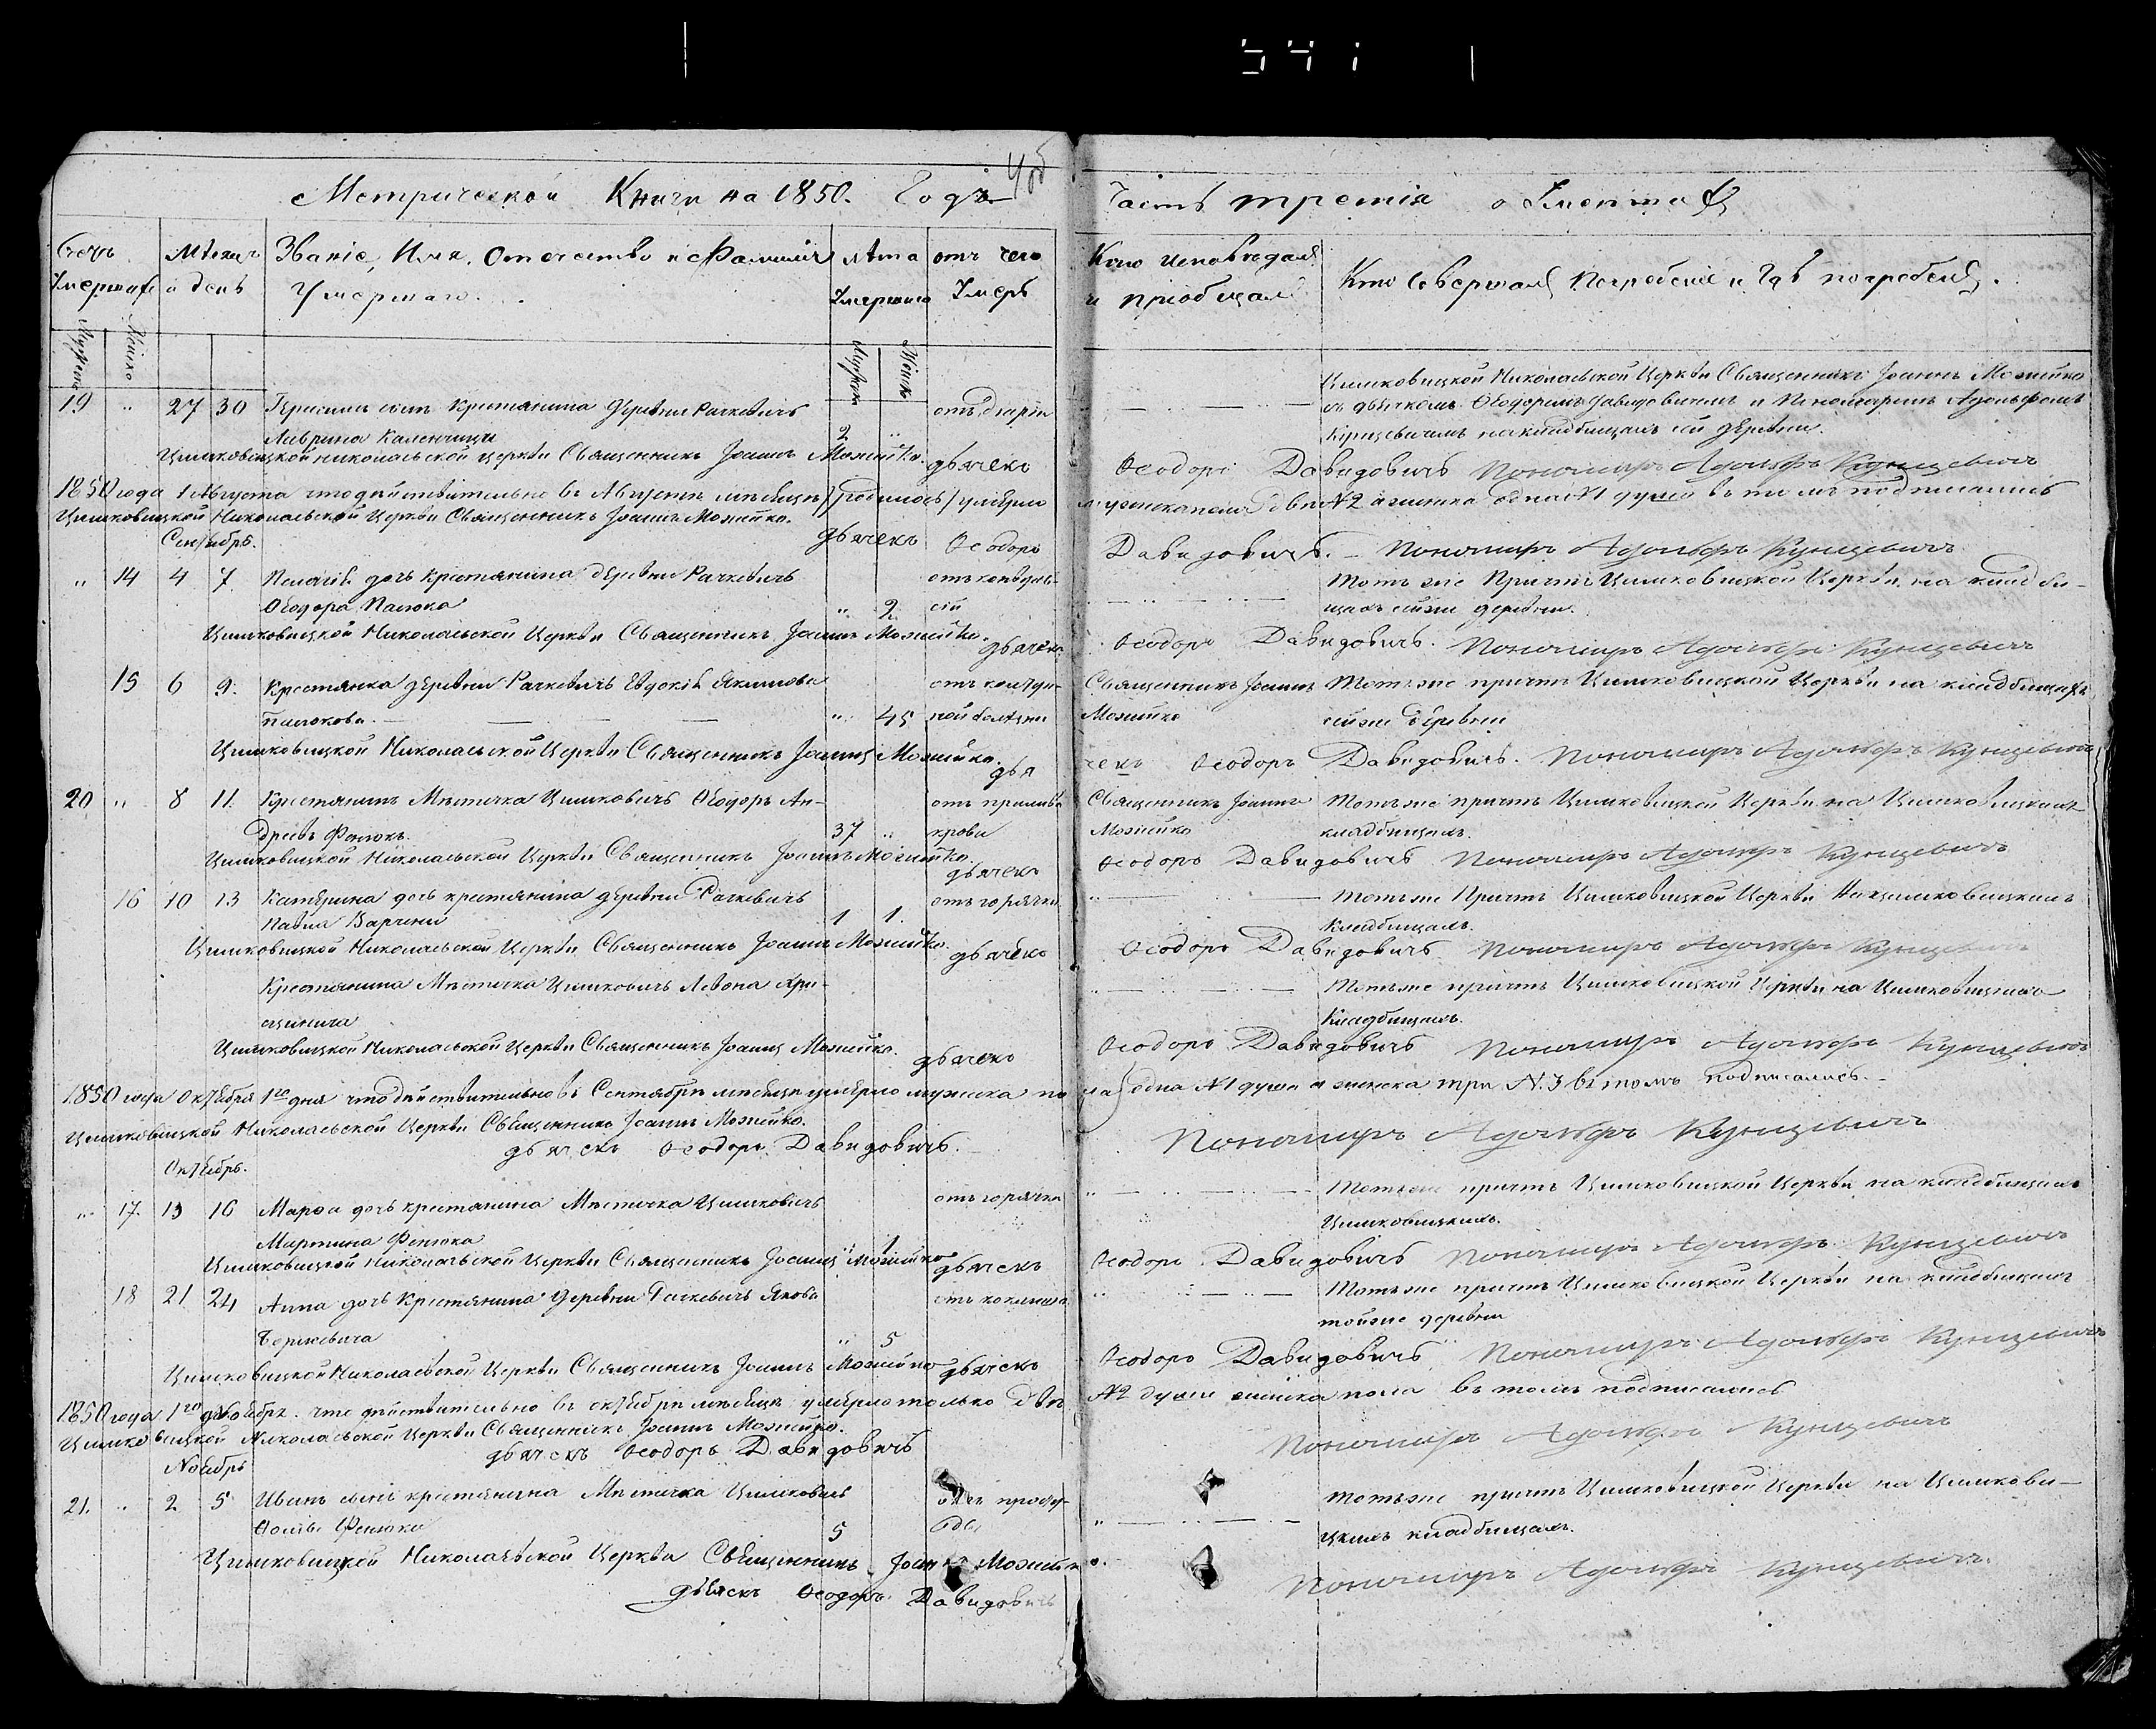 541
4 об
Метрической Книги на 1850. Годъ
Часть третія о Умершихъ
Счетъ Умершихъ
Мѣсяцъ и день
Званіе, Имя, Отчество и Фамилія Умершаго.
Лѣта Умершаго
отъ чего Умеръ
Кто исповѣдалъ и пріобщалъ
Кто совершалъ Погребеніе и Гдѣ погребенъ.
Цимковицкой Николаевской Церкви Священникъ ІоаннъМожейко
19 „ 27 30 сынъ Крестянина деревни Рачкевичъ
съ дьячкомъ Ѳеодоромъ Давидовичемъ и Пономаремъ Адольфомъ
2 „
Кунцевичемъ на кладбищахъ сей деревни.
Цимковицкой Николаевской Церкви Священникъ Іоаннъ Можейко. дьячекъ Ѳеодоръ Давидовичъ Пономарь Адольфъ Кунцевичъ
1850 года 1 Августа что дѣйствительно въ умерло мужска пола двѣ N2 а женска одна N1 душа въ томъ подписались
Цимковицкой Николаевской Церкви Священникъ Іоаннъ Можейко.
дьячекъ Ѳеодоръ Давидовичъ. Пономарь Адольфъ Кунцевичъ
Сентябрь.
„ 14 4 7 дочь крестянина деревни Рачкевичъ
Тотъ же Причтъ Цимковицкой Церкви на кладби-
Ѳеодора Палюка „ 2.
щахъ сейже деревни.
Цимковицкой Николаевской Церкви Священникъ Іоаннъ Можейко. дьячекъ Ѳеодоръ Давидовичъ. Пономарь Адольфъ Кунцевичъ
15 6 9. Крестянка деревни Рачкевичъ Евдокія Якимова
Священникъ Іоаннъ Тотъже причтъ Цимковицкой Церкви на кладбищахъ
Палюкова. „ 45 болѣзни Можейко сейже деревни
Цимковицкой Николаевской Церкви Священникъ Іоаннъ Можейко. дьячекъ Ѳеодоръ Давидовичъ. Пономарь Адольфъ Кунцевичъ
20 „ 8 11. Крестянинъ Мѣстечка Цимковичъ Ѳеодоръ Ан-
отъ прилива Священникъ Іоаннъ Тотъже причтъ Цимковицкой Церкви на Цимковицкихъ
дреевъ Фенюкъ. 37 „ крови Можейко кладбищахъ.
Цимковицкой Николаевской Церкви Священникъ Іоаннъ Можейко. дьячекъ Ѳеодоръ Давидовичъ Пономарь Адольфъ Кунцевичъ
16 10 13 Катерина дочь крестянина деревни Рачкевичъ
отъ горячки Тотъже Причтъ Цимковицкой Церкви На Цимковицкихъ
Павла 1 1. Кладбищахъ.
Цимковицкой Николаевской Церкви Священникъ Іоаннъ Можейко. дьячекъ Ѳеодоръ Давидовичъ Пономарь Адольфъ Кунцевичъ
Крестянина Мѣстечка Цимковичъ Левона
Тотъже причтъ Цимковицкой Церкви на Цимковицкихъ
Кладбищахъ.
Цимковицкой Николаевской Церкви Священникъ Іоаннъ Можейко. дьячекъ Ѳеодоръ Давидовичъ Пономарь Адольфъ Кунцевичъ
1850 года Октября 1го дня что дѣйствительно въ Сентябрѣ мѣсяцѣ умерло мужска пола одна N1 душа а женска три N.3 въ томъ подписались.
Цимковицкой Николаевской Церкви Священникъ Іоаннъ Можейко.
дьячекъ Ѳеодоръ Давидовичъ. Пономарь Адольфъ Кунцевичъ
Октябрь.
„ 17. 13 16 Марѳа дочь крестянина Мѣстечка Цимковичъ
отъ горячки Тотъже причтъ Цимковицкой Церкви на кладбищахъ
Мартина Фенюка „ 1 Цимковицкихъ.
Цимковицкой Николаевской Церкви Священникъ Іоаннъ Можейко дьячекъ Ѳеодоръ Давидовичъ Пономарь Адольфъ Кунцевичъ
18 21 24 Анна дочь Крестянина Деревни Рачкевичъ Якова
Тотъже причтъ Цимковицкой Церкви на кладбищахъ
„ 5 тойже деревни
Цимковицкой Николаевской Церкви Священникъ Іоаннъ Можейко дьячекъ Ѳеодоръ Давидовичъ Пономарь Адольфъ Кунцевичъ
1850 года 1го Ноября. что дѣйствительно въ октябрѣ мѣсяцѣ умерло только двѣ N2 души женска пола въ томъ подписались
Цимковицкой Николаевской Церкви Священникъ Іоаннъ Можейко.
дьячекъ Ѳеодоръ Давидовичъ Пономарь Адольфъ Кунцевичъ
Ноябрь
21. „ 2 5 Иванъ сынъ крестянина Мѣстечка Цимковичъ
тотъже причтъ Цимковицкой Церкви на Цимкови-
Ѳомы Фенюка 5 цкихъ кладбищахъ.
Цимковицкой Николаевской Церкви Священникъ Іоаннъ Можейко.
дьячекъ Ѳеодоръ Давидовичъ Пономарь Адольфъ Кунцевичъ.